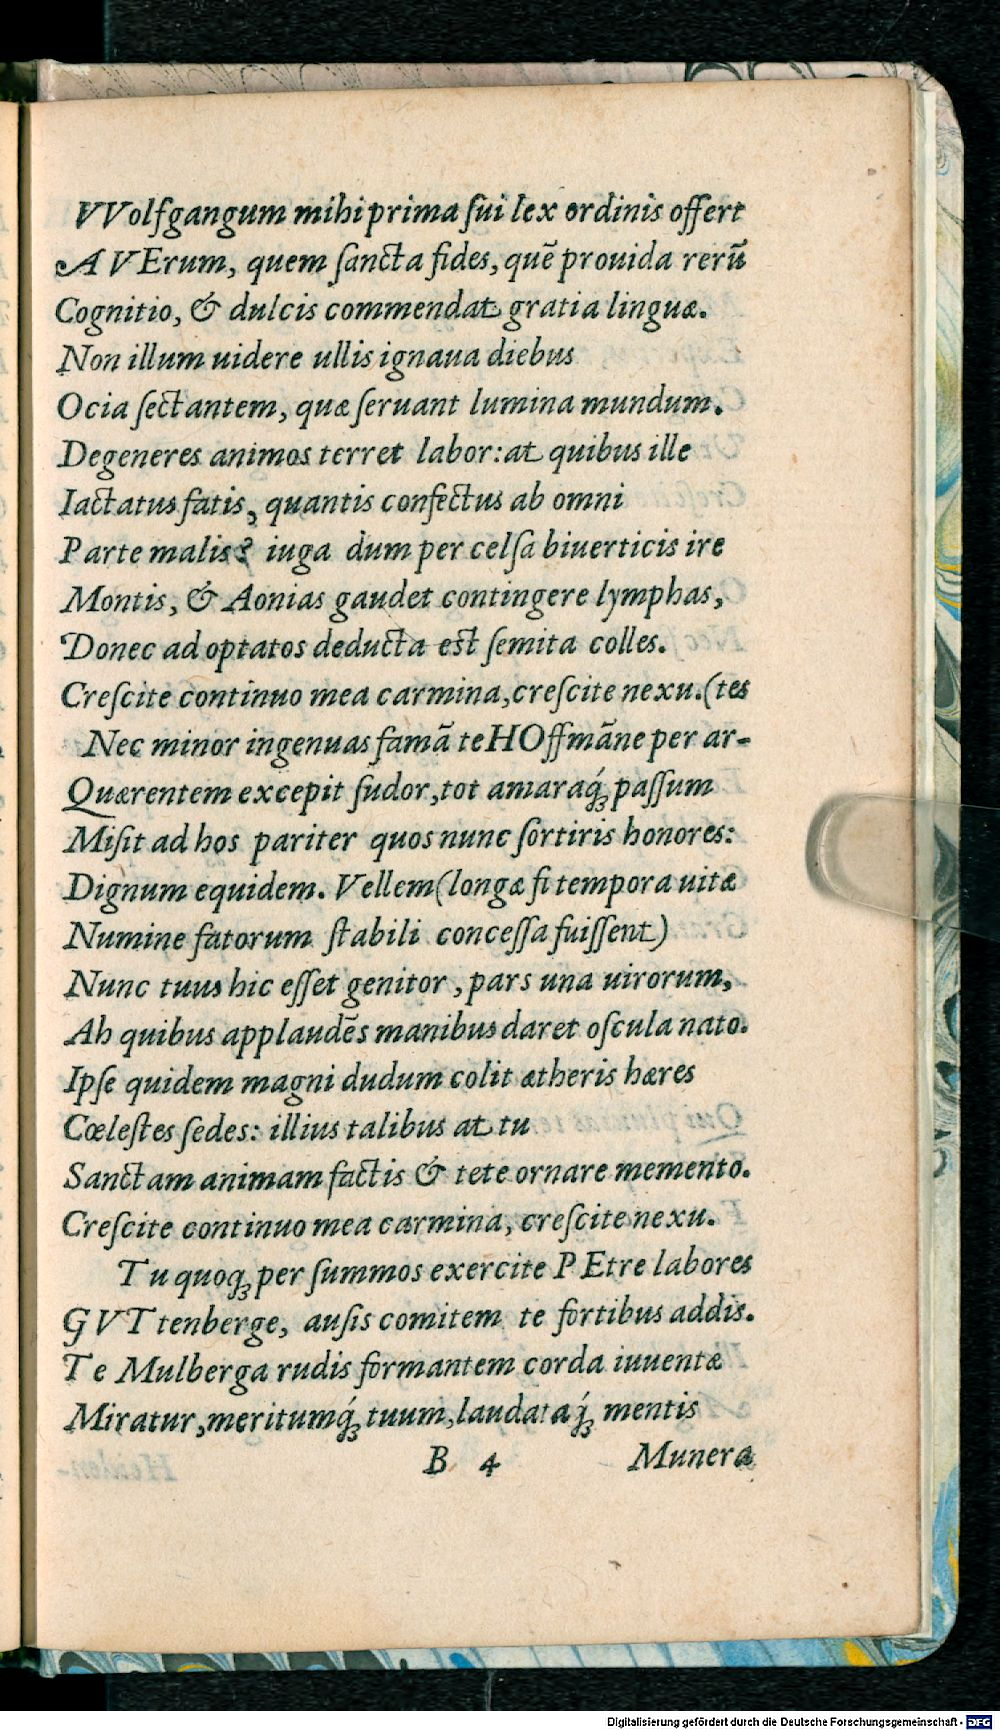 VVolfgangum mihi prima ſui lex ordinis offert
AVErum, quem ſancta fides, quē prouida rerū
Cognitio, & dulcis commendat gratia linguæ.
Non illum uidere ullis ignaua diebus
Ocia ſectantem, quæ ſeruant lumina mundum.
Degeneres animos terret labor: at quibus ille
Iactatus fatis, quantis confectus ab omni
Parte malis? iuga dum per celſa biuerticis ire
Montis, & Aonias gaudet contingere lymphas,
Donec ad optatos deducta est ſemita colles.
Creſcite continuo mea carmina, creſcite nexu. (tes
Nec minor ingenuas famā te HOffmāne per ar-
Quærentem excepit ſudor, tot amaraq́; paſſum
Miſit ad hos pariter quos nunc ſortiris honores:
Dignum equidem. Vellem (longæ ſi tempora uitæ
Numine fatorum ſtabili conceſſa fuiſſent)
Nunc tuus hic eſſet genitor, pars una uirorum,
Ah quibus applaudēs manibus daret oſcula nato.
Ipſe quidem magni dudum colit ætheris hæres
Cœleſtes ſedes: illius talibus at tu
Sanctam animam factis & tete ornare memento.
Creſcite continuo mea carmina, creſcite nexu.
Tu quoq; per ſummos exercite PEtre labores
GVTtenberge, auſis comitem te fortibus addis.
Te Mulberga rudis formantem corda iuuentæ
Miratur, meritumq́; tuum, laudataq́; mentis
B 4 Munera
Digitalisierung gefördert durch die Deutsche Forschungsgemeinschaft - DFG